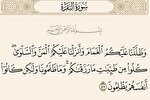 سُورَةُ البَقَرَةِ
وَظَلَّلْنَا عَلَيْكُمُ الْغَمَامَ وَأَنزَلْنَا عَلَيْكُمُ الْمَنَّ وَالسَّلْوَىٰ
كُلُوا مِن طَيِّبَاتِ مَا رَزَقْنَاكُمْ وَمَا ظَلَمُونَا وَلَٰكِن كَانُوا
أَنفُسَهُمْ يَظْلِمُونَ